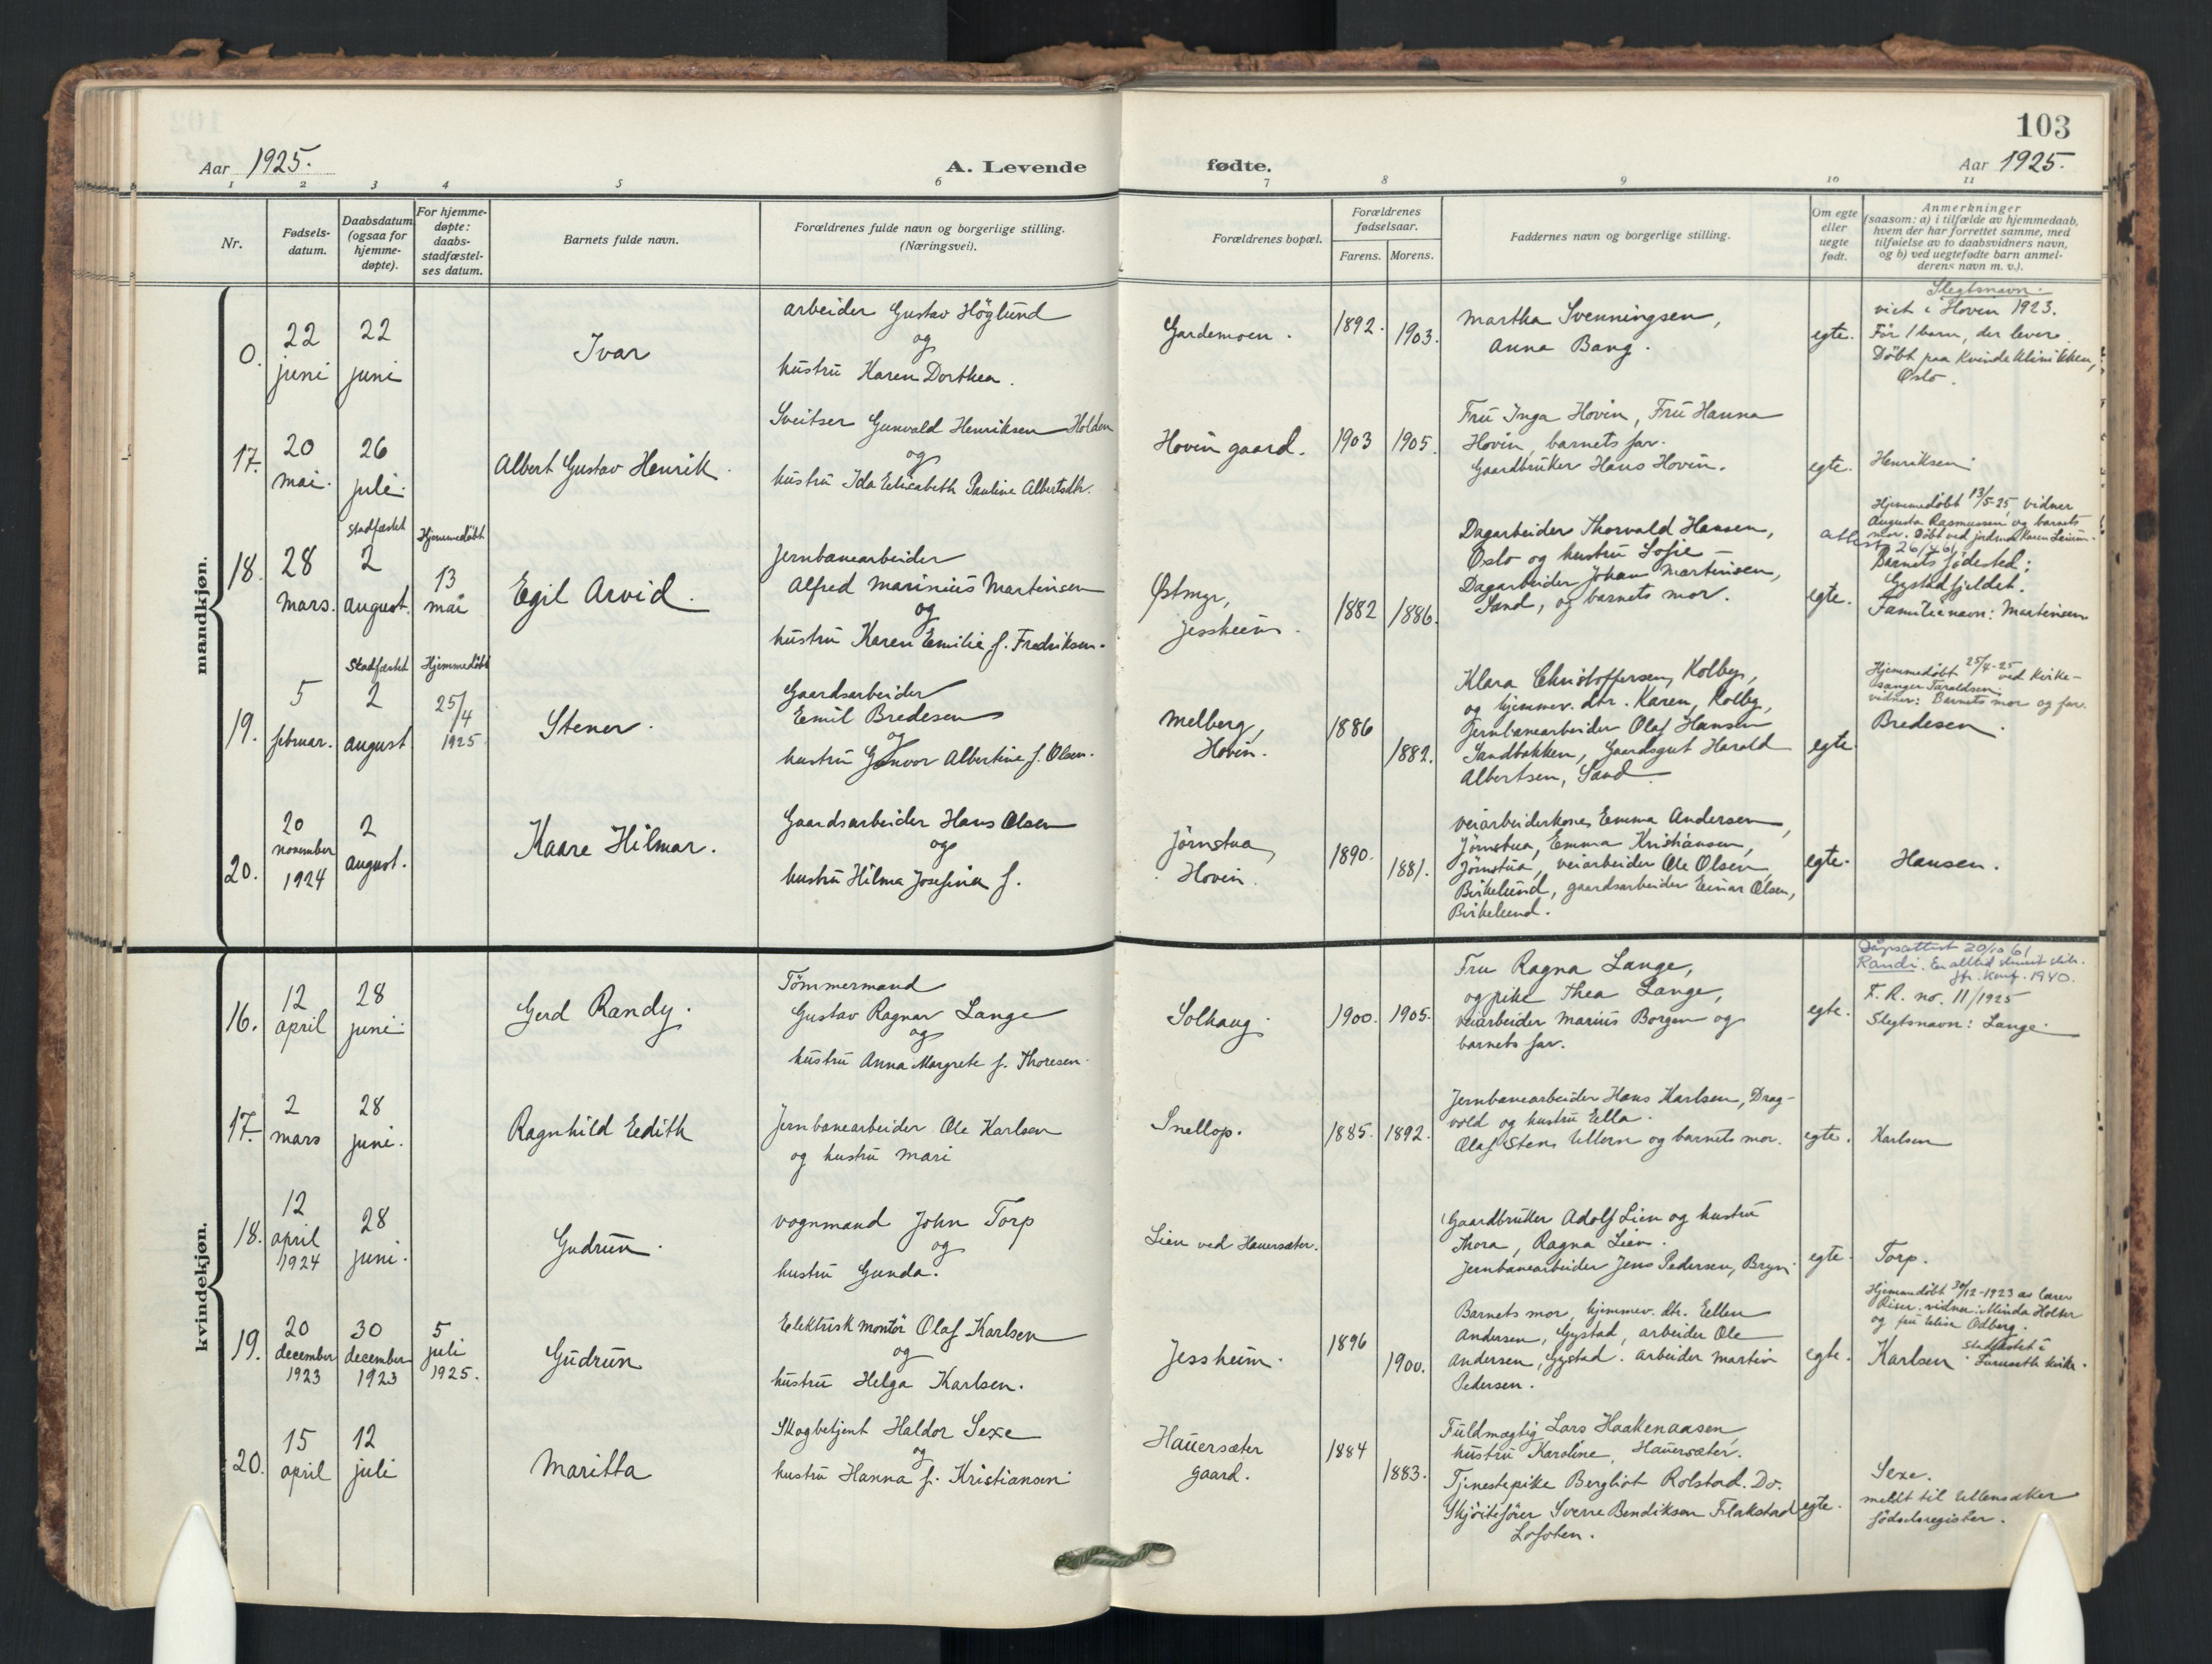 103
Aar 1925.
A. Levende
fødte.
Aar 1925.
1 2 3 4 5 6 7 8 9 10 11
Nr.
Fødsels-
datum.
Daabsdatum
(ogsaa for
hjemme-
døpte).
For hjemme-
døpte:
daabs-
stadfæstel-
ses datum.
Barnets fulde navn.
Forældrenes fulde navn og borgerlige stilling.
(Næringsvei).
Forældrenes bopæl.
Forældrenes
fødselsaar.
Farens. Morens.
Faddernes navn og borgerlige stilling.
Om egte
eller
uegte
født.
Anmerkninger
(saasom: a) i tilfælde av hjemmedaab,
hvem der har forrettet samme, med
tilføielse av to daabsvidners navn,
og b) ved uegtefødte barn anmel-
derens navn m. v.).
mandkjøn.
0.
22
juni
22
juni
Ivar
arbeider Gustav Höglund
og
hustru Karen Dorthea.
Gardemoen.
1892. 1903.
Martha Svenningsen,
Anna Bang.
egte.
Slegtsnavn.
viet i Hovin 1923.
Før 1 barn, der lever.
Döbt paa Kvindeklinikken,
Oslo.
17.
20
mai.
26
juli.
Albert Gustav Henrik.
Sveitser Gunvald Henriksen Holden
og
hustru Ida Elisabeth Pauline Albertsdtr.
Hovin gaard.
1903 1905.
Fru Inga Hovin, Fru Hanna
Hovin, barnets far.
Gaardbruker Hans Hovin.
egte.
Henriksen.
18.
28
mars.
Stadfæstet
2
august.
Hjemmedöbt
13
mai
Egil Arvid.
Jernbanearbeider
Alfred Marinius Martinsen
og
hustru Karen Emilie f. Fredriksen.
Østmyr,
Jessheim.
1882 1886.
Dagarbeider Thorvald Hansen,
Oslo og hustru Sofie –
Dagarbeider Johan Martinsen,
Sand, og barnets mor.
attest 26/4 61
egte.
Hjemmedöbt 13/5-25, vidner
Augusta Rasmussen og barnets
mor. Döbt ved jordmor Karen
Barnets födested:
Gystadfjeldet.
Familienavn: Martinsen
19.
5
februar.
Stadfæstet
2
august
Hjemmedöbt
25/4
1925
Stener.
Gaardsarbeider
Emil Bredesen
og
hustru Gunvor Albertine f. Olsen.
Melberg,
Hovin.
1886
1882.
Klara Christoffersen, Kolby,
og hjemmev. dtr. Karen, Kolby,
Jernbanearbeider Olaf Hansen
Sandbakken, Gaardsgut Harald
Albertsen, Sand.
egte
Hjemmedöbt 25/4-25 ved Kirke-
sanger Taraldsen,
vidner: Barnets mor og far.
Bredesen.
20.
20
november
1924
2
august.
Kaare Hilmar.
Gaardsarbeider Hans Olsen
og
hustru Hilma Josefine f.
Jørnstua,
Hovin.
1890. 1881.
veiarbeiderkone Emma Andersen,
Jørnstua, Emma Kristiansen,
Jørnstua, veiarbeider Ole Olsen,
Birkelund, gaardsarbeider Einar Olsen,
Birkelund.
egte.
Hansen.
kvindekjøn.
16.
12
april
28
juni.
Gerd Randy.
Tømmermand
Gustav Ragnar Lange
og
hustru Anna Margrete f. Thoresen.
Solhaug.
1900. 1905.
Fru Ragna Lange,
og pike Thea Lange,
veiarbeider Marius Borgen og
barnets far.
egte.
Dåpsattest 20/10 61
Randi. Er alltid skrevet slik.
jfr. Konf. 1940.
F. R. no. 11/1925
Slegtsnavn: Lange.
17.
2
mars
28
juni.
Ragnhild Edith
Jernbanearbeider Ole Karlsen
og hustru Mari
Snellop.
1885. 1892.
Jernbanearbeider Hans Karlsen, Drag-
vold og hustru Ella.
Olaf Stens Ullern og barnets mor.
egte.
Karlsen
18.
12
april
1924
28
juni.
Gudrun.
vognmand John Torp
og
hustru Gunda.
Lien ved Hauersæter.
Gaardbruker Adolf Lien og hustru
Thora, Ragna Lien.
Jernbanearbeider Jens Pedersen, Bryn.
egte.
Torp.
19.
20
december
1923
30
december
1923
5
juli
1925.
Gudrun
Elektrisk montör Olaf Karlsen
og
hustru Helga Karlsen.
Jessheim.
1896
1900.
Barnets mor, hjemmev. dtr. Ellen
Andersen, Gystad, arbeider Ole
Andersen, Gystad. arbeider Martin
Pedersen.
egte.
Hjemmedöbt 30/12-1923 av lærer
Riser. vidner: Minda Holter
og fru Elise Odberg.
Karlsen. Stadfæstet i
Furuseth kirke.
20.
15
april
12
juli
Maritta
Skogbetjent Haldor Sexe
og
hustru Hanna f. Kristiansen.
Hauersæter
gaard.
1884
1883.
Fuldmægtig Lars Haakenaasen,
hustru Karoline, Hauersæter.
Tjenestepike Bergliot Rolstad. Do.
Skjöitefører Sverre Bendiksen Flakstad
Lofoten.
egte.
Sexe.
meldt til Ullensaker
födselsregister.